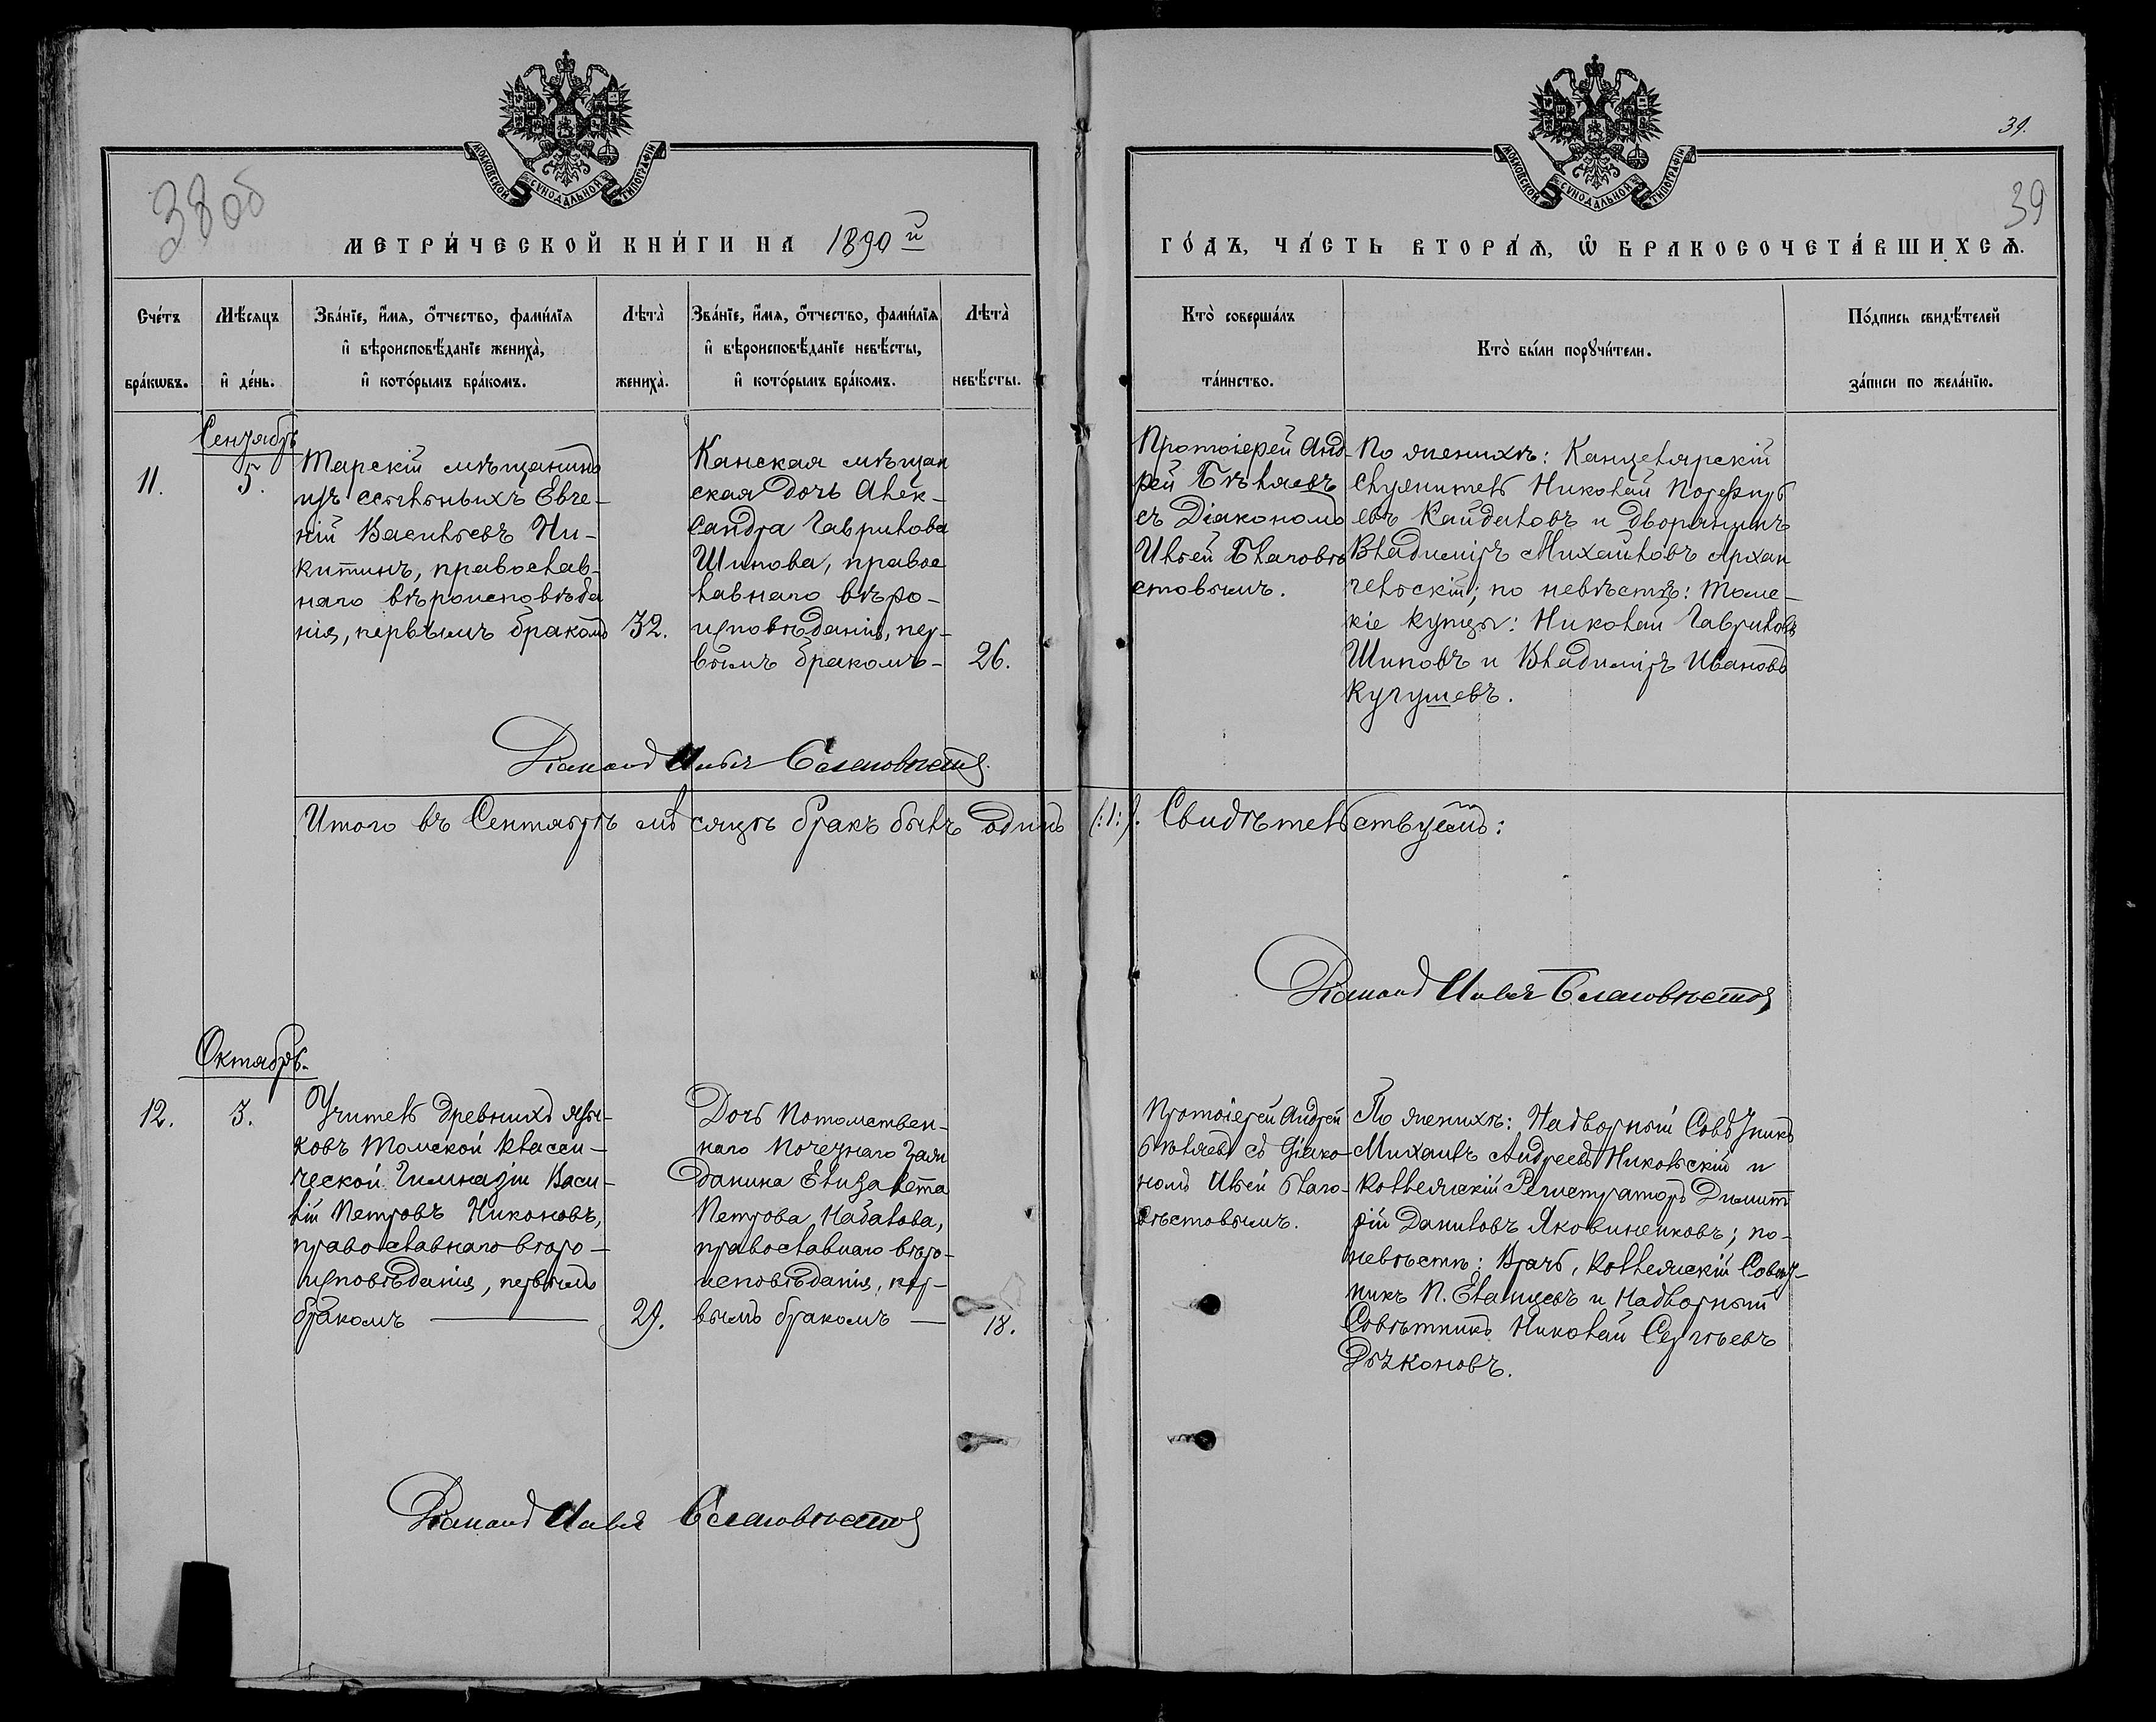 МОСКОВСКОЙ СѴНОДАЛЬНОЙ ТИПОГРАФІИ
38 об
МЕТРИ́ЧЕСКОЙ КНИ́ГИ НА 1890й
Сче́тъ бра́кѡвъ.
Мѣ́сяцъ и҆ де́нь.
Зва́нїе, и҆́мя, ѻ҆́тчество, фами́лїя
и҆ вѣроисповѣ́данїе жениха̀,
и҆ кото́рымъ бра́комъ.
Лѣта̀ жениха̀.
Зва́нїе, и҆́мя, ѻ҆́тчество, фами́лїя
и҆ вѣроисповѣ́данїе невѣ́сты,
и҆ кото́рымъ бра́комъ.
Лѣта̀ невѣ́сты.
Сентябрь
11.
5.
Тарскій мѣщанинъ
изъ ссыльныхъ Евге-
ній Васильевъ Ни-
китинъ, православ-
наго вѣроисповѣда
нія, первымъ бракомъ
32.
Канская мѣщан
ская дочь Алек-
сандра Гаврилова
Шипова, правос
лавнаго вѣро-
исповѣданія, пер-
вымъ бракомъ-
26.
Діаконъ Илья Благовѣстовъ
Итого въ Сентябрѣ мѣсяцѣ бракъ былъ одинъ (:1:). Свидѣтельствуемъ:
Октябрь.
12.
3.
Учитель древнихъ язы-
ковъ Томской Класси-
ческой Гимназіи Васи-
лій Петровъ Никоновъ,
православнаго вѣро-
исповѣданія, первымъ
бракомъ
29.
Дочь Потомствен-
наго Почетнаго Граж
данина Елизавета
Петрова Набалова,
православнаго вѣро-
исповѣданія, пер-
вымъ бракомъ
18.
Діаконъ Илья Благовѣстовъ
39.
39
МОСКОВСКОЙ СѴНОДАЛЬНОЙ ТИПОГРАФІИ
ГО́ДЪ, ЧА́СТЬ ВТОРА́Я, Ѡ҆ БРАКОСОЧЕТА́ВШИХСЯ.
Кто̀ соверша́лъ
та́инство.
Кто̀ бы́ли порꙋчи́тели.
По́дпись свидѣ́телей
за́писи по жела́нїю.
Протоіерей Анд-
рей Бѣляевъ
съ Діакономъ
Ильей Благовѣ
стовымъ.
По женихѣ: Канцелярскій
служитель Николай Порфирь
евъ Кайдаловъ и дворянинъ
Владиміръ Михайловъ Архан
гельскій; по невѣстѣ: Томс-
кіе купцы: Николай Гавриловъ
Шиповъ и Владиміръ Ивановъ
Кугушевъ.
Діаконъ Илья Благовѣстовъ
Протоіерей Андрей
Бѣляевъ съ Діако-
номъ Ильей Благо-
вѣстовымъ.
По женихѣ: Надворный Совѣтникъ
Михаилъ Андреевъ Никольскій и
Коллежскій Регистраторъ Димит
рій Даниловъ Яковиненковъ; по-
невѣстѣ: Врачъ, Коллежскій Совѣт-
никъ П. Еланцевъ и Надворный
Совѣтникъ Николай Сергѣевъ